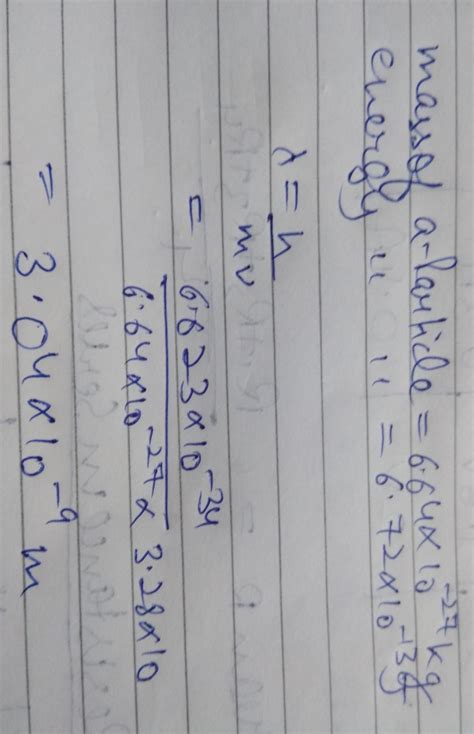 mass of α-Particle = 6.64×10⁻²⁷ kg
energy " " = 6.72×10⁻¹³ J.
λ = h
mv
= 6.623×10⁻³⁴
6.64×10⁻²⁷ × 3.28×10
= 3.04×10⁻⁹ m